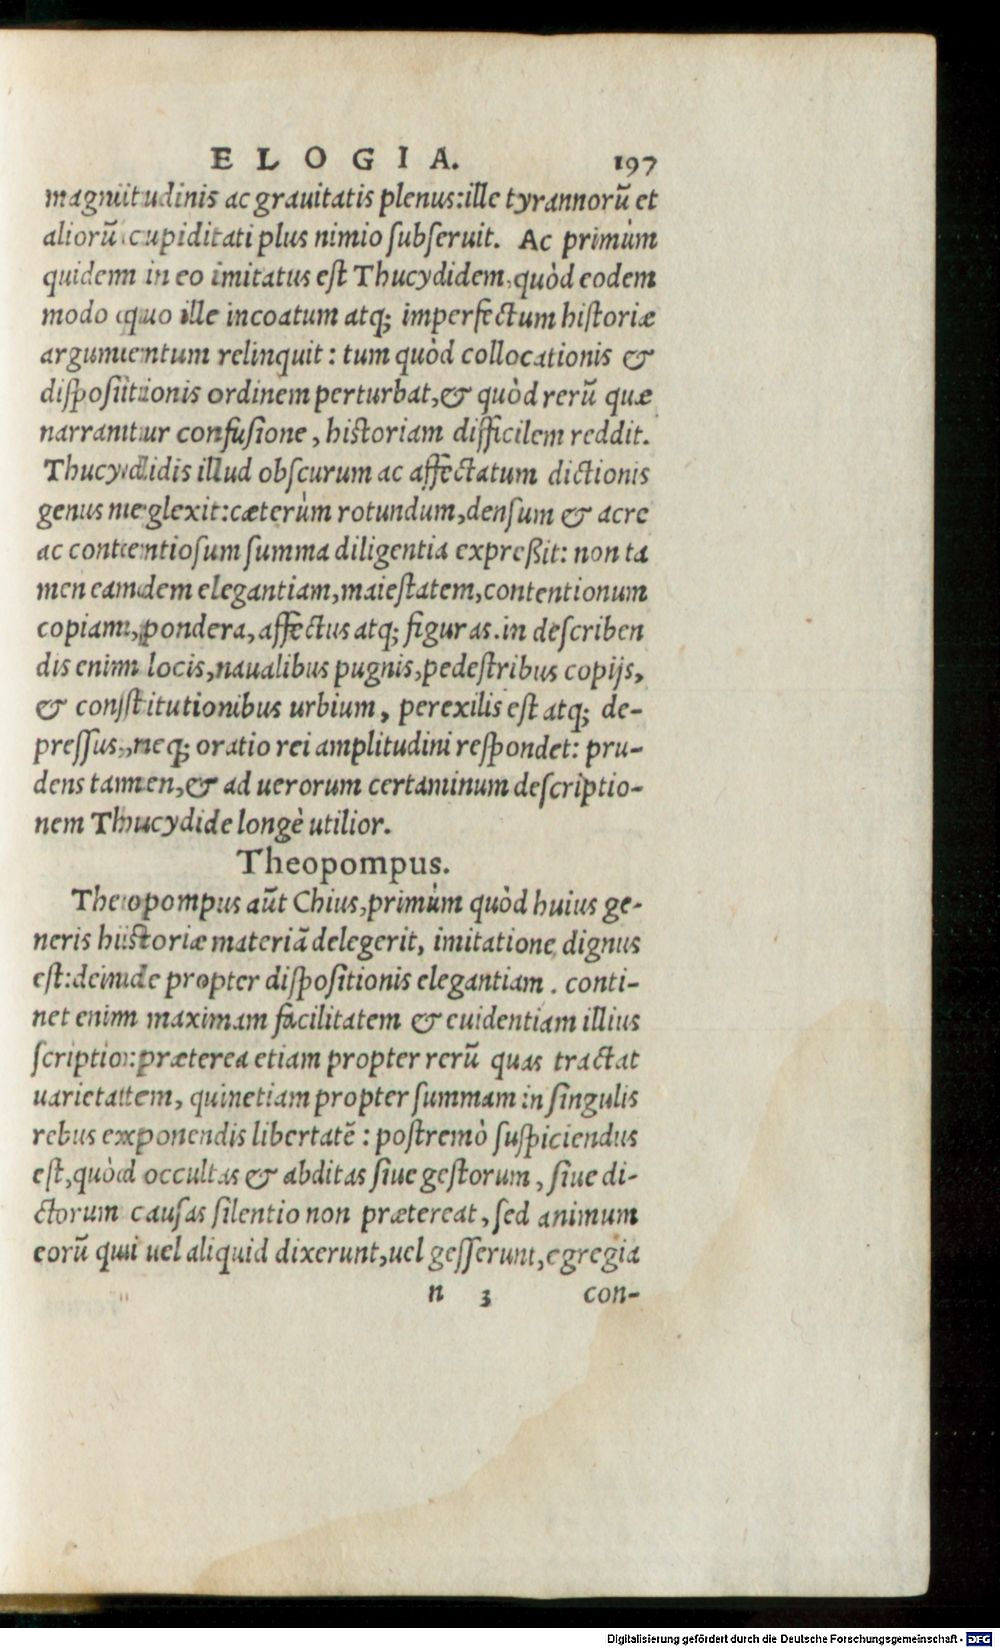 ELOGIA. 197
magnitudinis ac grauitatis plenus: ille tyrannorū et
aliorū cupiditati plus nimio subseruit. Ac primùm
quidem in eo imitatus est Thucydidem, quòd eodem
modo quo ille incoatum atq; imperfectum historiæ
argumentum relinquit: tum quòd collocationis &
dispositionis ordinem perturbat, & quòd rerū quæ
narrantur confusione, historiam difficilem reddit.
Thucydidis illud obscurum ac affectatum dictionis
genus neglexit: cæterùm rotundum, densum & acre
ac contentiosum summa diligentia expreßit: non ta
men eamdem elegantiam, maiestatem, contentionum
copiam, pondera, affectus atq; figuras. in describen
dis enim locis, naualibus pugnis, pedestribus copijs,
& constitutionibus urbium, perexilis est atq; de-
pressus, neq; oratio rei amplitudini respondet: pru-
dens tamen, & ad uerorum certaminum descriptio-
nem Thucydide longè utilior.
Theopompus.
Theopompus aūt Chius, primùm quòd huius ge-
neris historiæ materiā delegerit, imitatione dignus
est: deinde propter dispositionis elegantiam. conti-
net enim maximam facilitatem & euidentiam illius
scriptio: præterea etiam propter rerū quas tractat
uarietatem, quinetiam propter summam in singulis
rebus exponendis libertatē: postremò suspiciendus
est, quòd occultas & abditas siue gestorum, siue di-
ctorum causas silentio non prætereat, sed animum
eorū qui uel aliquid dixerunt, uel gesserunt, egregia
n 3 con-
Digitalisierung gefördert durch die Deutsche Forschungsgemeinschaft - DFG